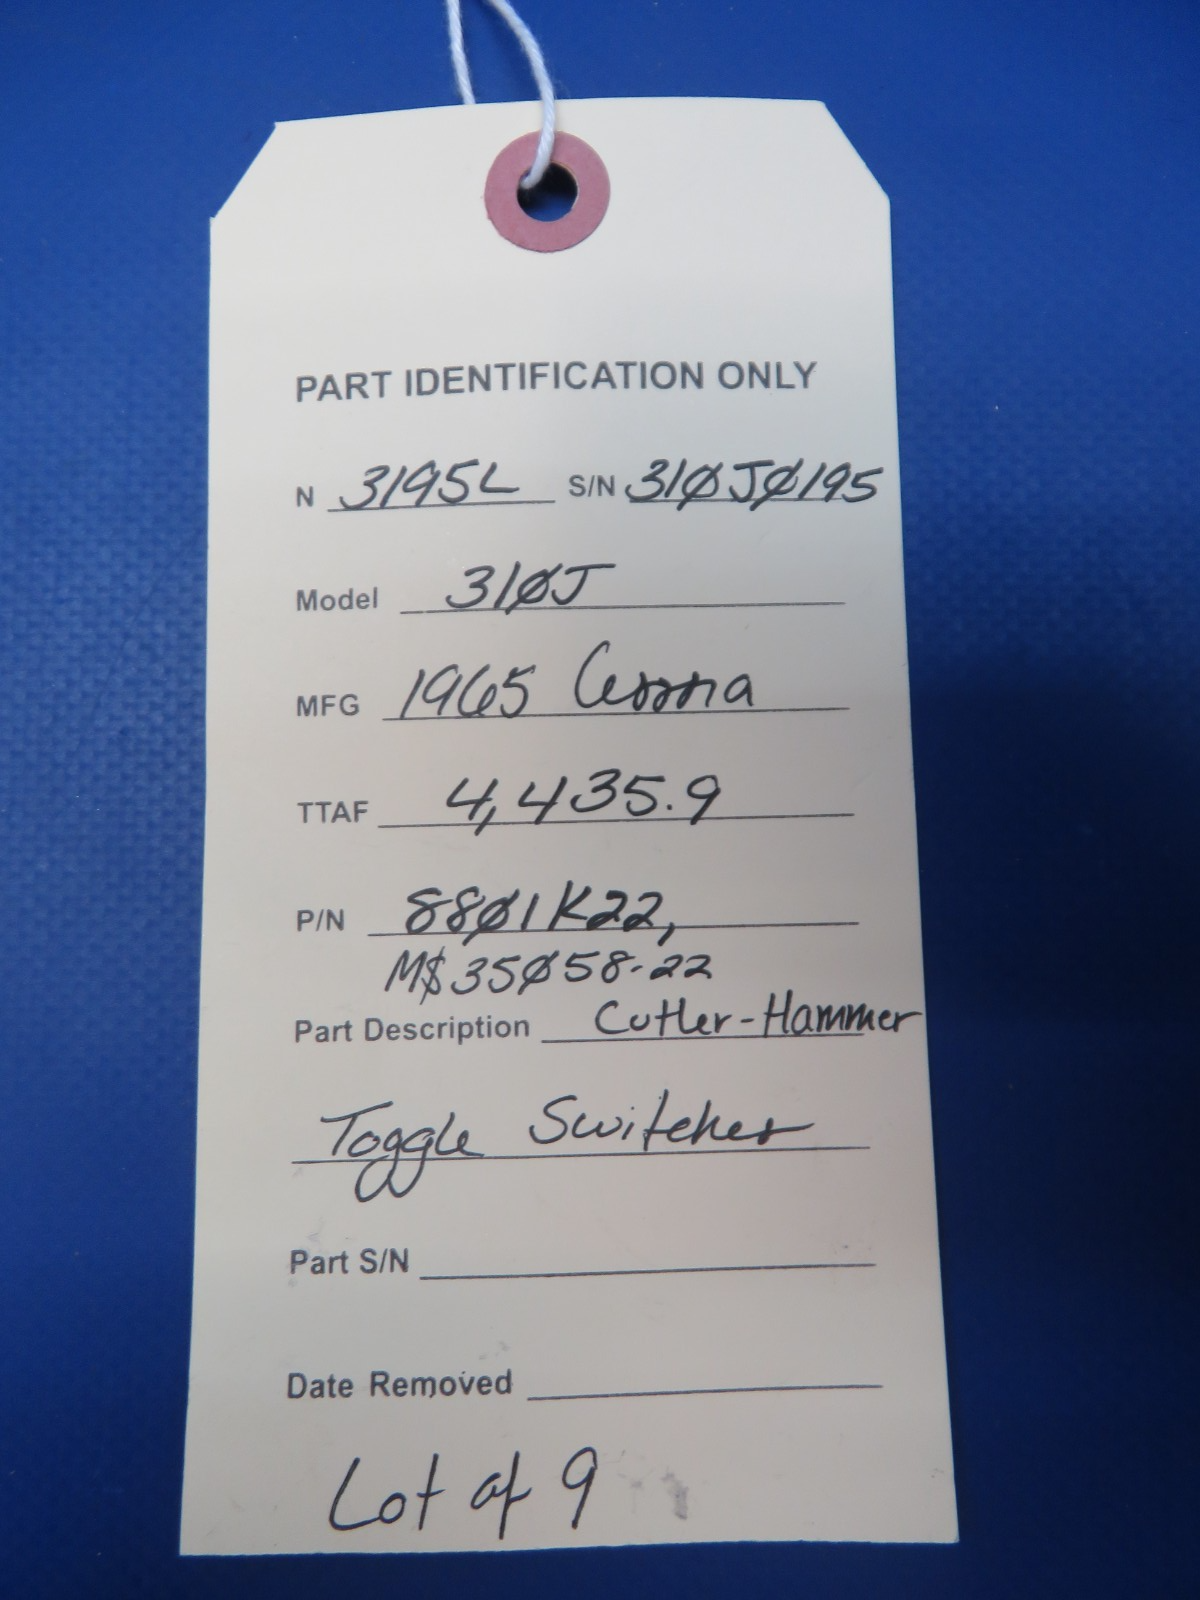 PART IDENTIFICATION ONLY
N 3195L S/N 310J0195
Model 310J
MFG 1965 Cessna
TTAF 4,435.9
P/N 8801K22,
MS35058-22
Part Description Cutler-Hammer
Toggle Switches
Part S/N
Date Removed
Lot of 9